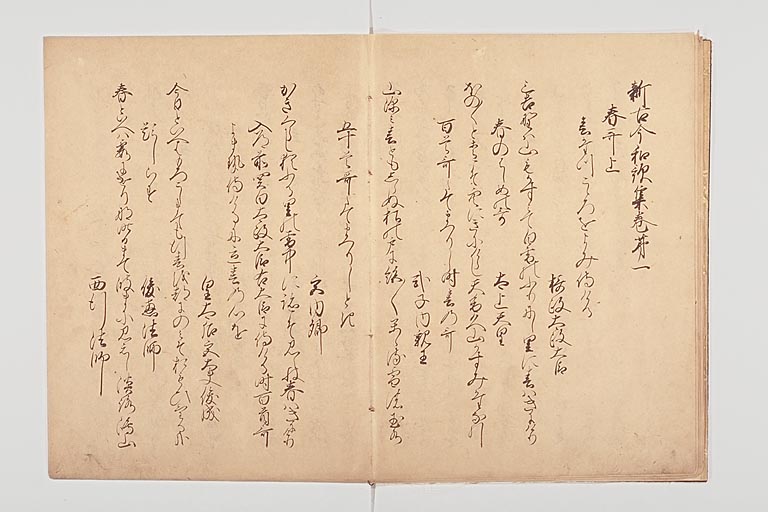 新古今和歌集巻第一
春哥上
春たつこゝろをよみ侍ける
摂政太政大臣
三吉野は山もかすみて白雪のふりにし里に春はきにけり
春のはしめの哥　太上天皇
ほのくと春こそ空にきにけらし天のかく山かすみたなひく
百首哥たてまつりし時春の哥
式子内親王
山深み春ともしらぬ松の戸に絶くかゝる雪の玉水
五十首哥たてまつりしとき
宮内卿
かきくらし猶ふる里の雪の中に跡こそ見えね春はきにけり
入道前関白太政大臣右大臣に侍ける時百首哥
よませ侍けるに立春の心を
皇太后宮大夫俊成
今日といへはもろこしまても行春を都にのみとおもひける
題しらす　俊恵法師
春といへは霞にけりな昨日まて波まに見えし淡路嶋山
西行法師